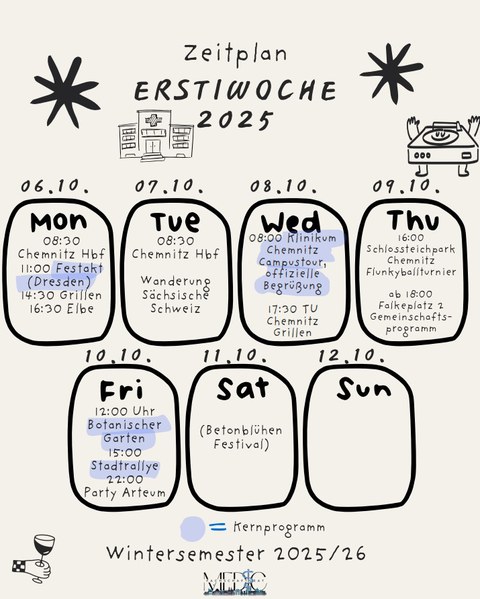 Zeitplan
ERSTIWOCHE
2025
06.10.
07.10.
08.10.
09.10.
Mon
08:30
Chemnitz Hbf
11:00 Festakt
(Dresden)
14:30 Grillen
16:30 Elbe
Tue
08:30
Chemnitz Hbf
Wanderung
Sächsische
Schweiz
Wed
08:00 Klinikum
Chemnitz
Campustour,
offizielle
Begrüßung
17:30 TU
Chemnitz
Grillen
Thu
16:00
Schlossteichpark
Chemnitz
Flunkyballturnier
ab 18:00
Falkeplatz 2
Gemeinschafts-
programm
10.10.
11.10.
12.10.
Fri
12:00 Uhr
Botanischer
Garten
15:00
Stadtrallye
22:00
Party Arteum
Sat
(Betonblühen
Festival)
Sun
= Kernprogramm
Wintersemester 2025/26
MEDIC